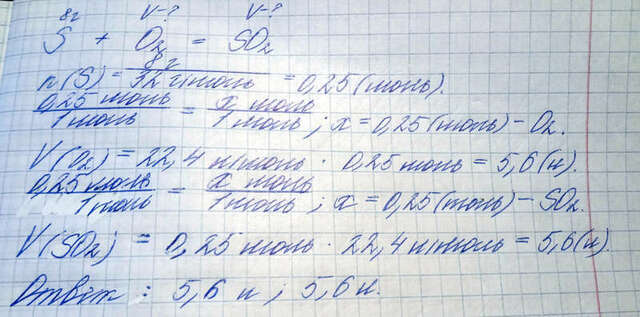 8г V-? V-?
S + O₂ = SO₂
n(S) = 8г / 32 г/моль = 0,25(моль).
0,25 моль / 1 моль = x моль / 1 моль ; x = 0,25(моль) - O₂.
V(O₂) = 22,4 л/моль · 0,25 моль = 5,6(л).
0,25 моль / 1 моль = x моль / 1 моль ; x = 0,25(моль) - SO₂.
V(SO₂) = 0,25 моль · 22,4 л/моль = 5,6(л).
Ответ : 5,6 л ; 5,6 л.